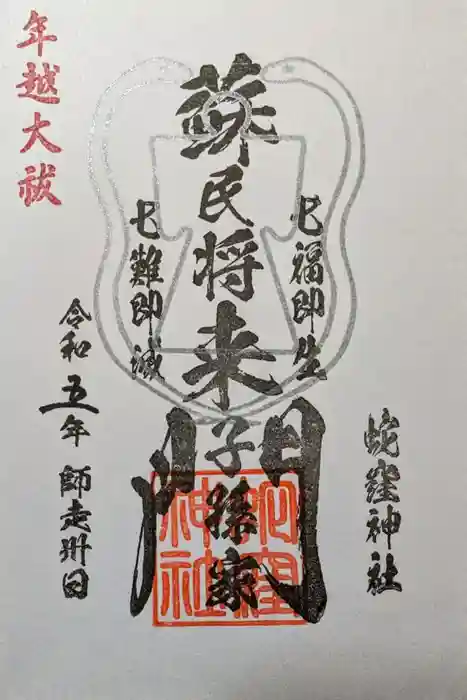 蛇窪神社
七福即生
蘇民将来子孫家門
七難即滅
年越大祓
令和五年 師走卅日
蛇窪
神社